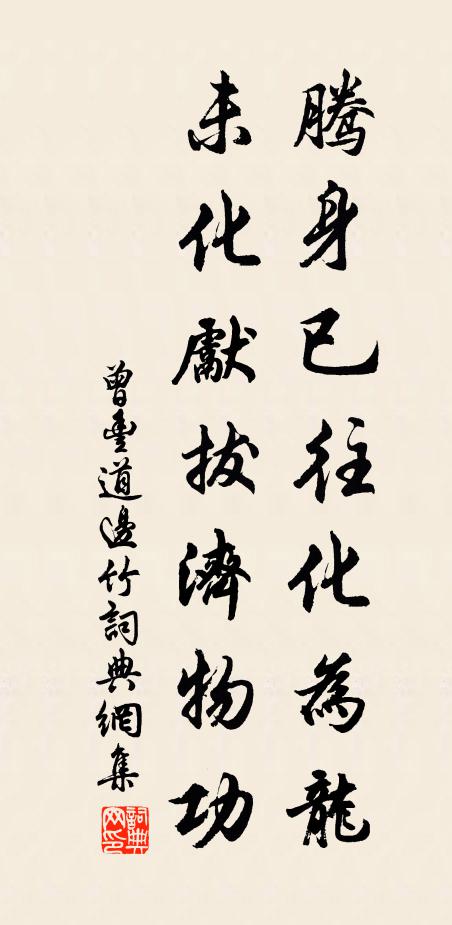 騰身已往化為龍
未化獻拔濟物功
曾豐道邊竹詞典網集
詞典网印